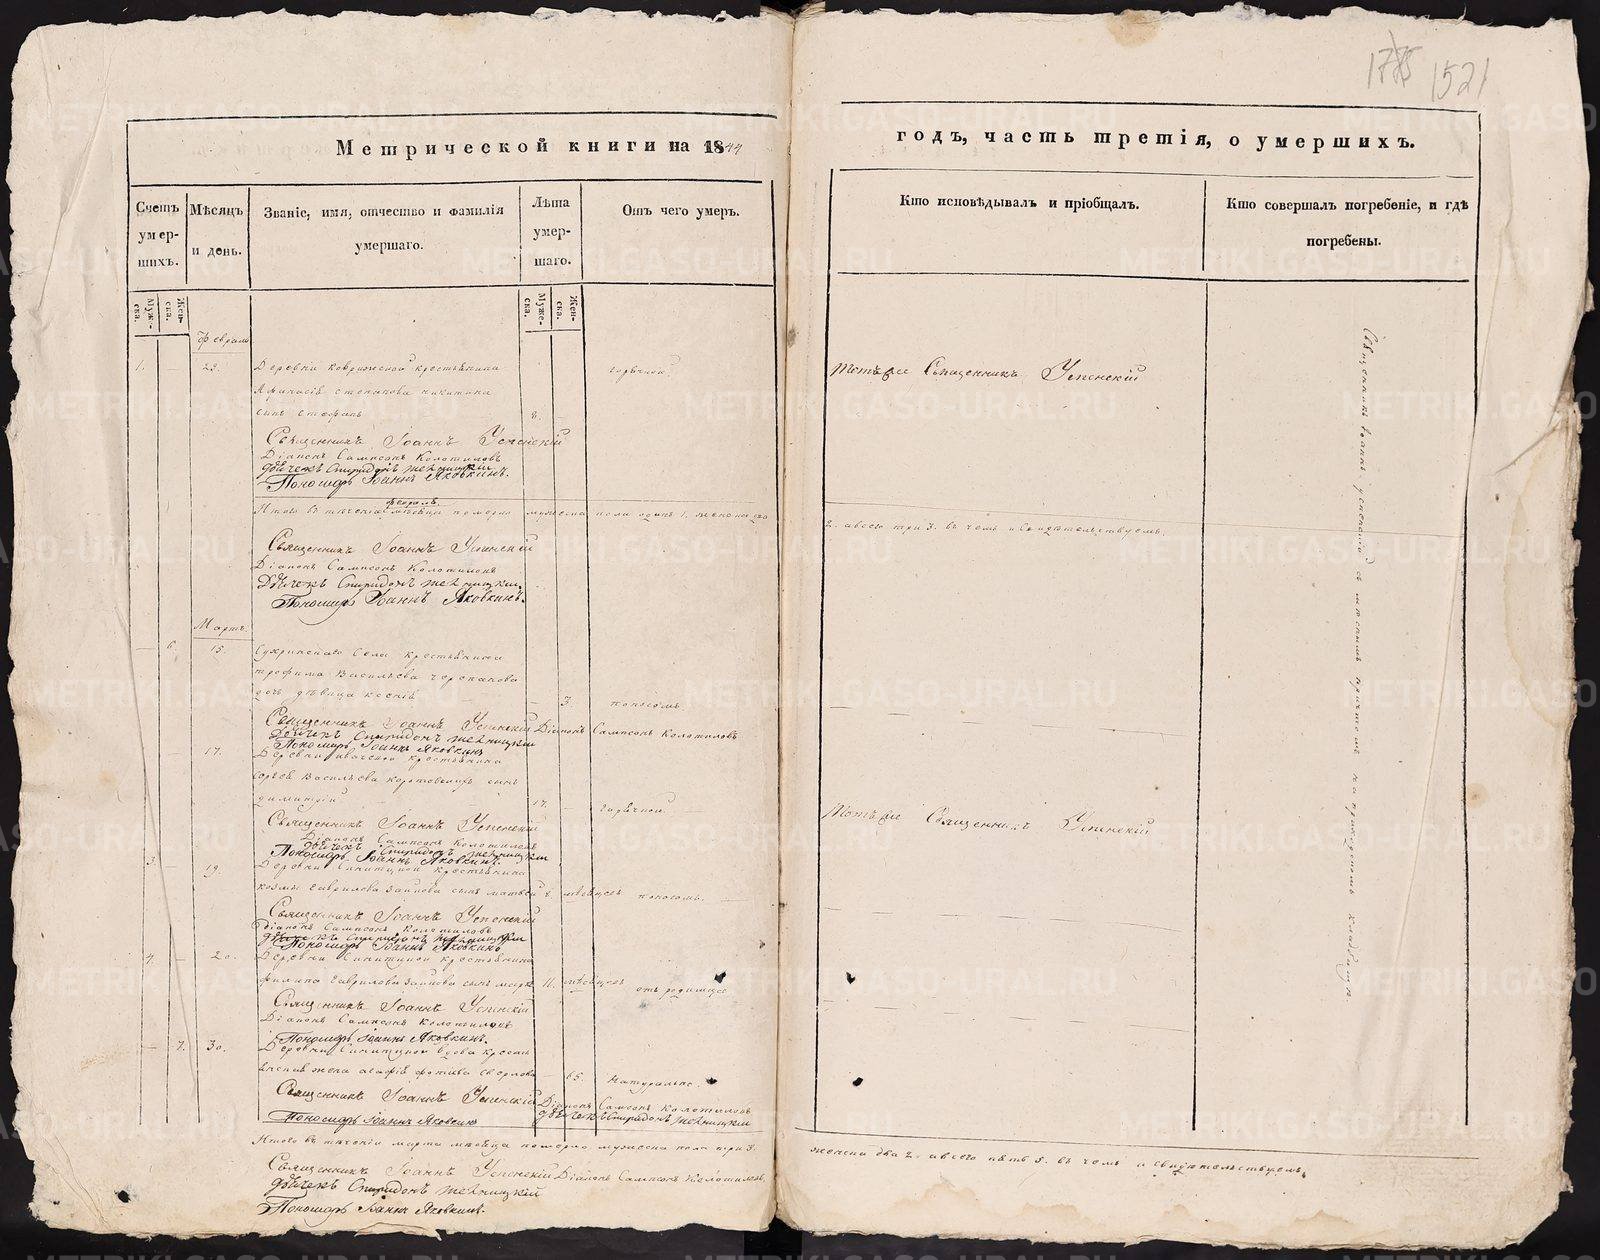 1775 1521
Метрической книги на 1844
годъ, часть третія, о умершихъ.
Счетъ умершихъ.
Мужеска.
Женска.
Мѣсяцъ и день.
Званіе, имя, отчество и фамилія умершаго.
Лѣта умершаго.
Мужеска.
Женска.
Отъ чего умеръ.
Кто исповѣдывалъ и пріобщалъ.
Кто совершалъ погребеніе, и гдѣ погребены.
Февраль
1. — 23. Деревни крестьянина горячкой
Афанасія Степанова Никитина
сынъ Стефанъ 8. —
Тотъ же Священникъ Успенскій
Священникъ Іоаннъ Успенскій
Діаконъ Сампсонъ Колотиловъ
Дьячекъ Спиридонъ
Пономарь Іоаннъ Яковкинъ.
Итого въ теченіи февраля мѣсяца померло мужеска пола одинъ 1. женска
2. а всего три 3. въ чемъ и свидѣтельствуемъ.
Священникъ Іоаннъ Успенскій
Діаконъ Сампсонъ Колотиловъ
Дьячекъ Спиридонъ
Пономарь Іоаннъ Яковкинъ.
Мартъ.
— 6. 15. Села крестьянина
Трофима Васильева Черепанова
дочь дѣвица Ксенія — 3. поносомъ.
Священникъ Іоаннъ Успенскій Діаконъ Сампсонъ Колотиловъ
Дьячекъ Спиридонъ
Пономарь Іоаннъ Яковкинъ
— 17. Деревни крестьянина
Васильева сынъ
Димитрій 17. — горячкой.
Тотъ же Священникъ Успенскій
Священникъ Іоаннъ Успенскій
Діаконъ Сампсонъ Колотиловъ
Дьячекъ Спиридонъ
Пономарь Іоаннъ Яковкинъ.
3. 19. Деревни крестьянина
Козмы Гаврилова сынъ Матвей 8. мѣсяцевъ поносомъ.
Священникъ Іоаннъ Успенскій
Діаконъ Сампсонъ Колотиловъ
Дьячекъ Спиридонъ
Пономарь Іоаннъ Яковкинъ
4. — 20. Деревни крестьянина
Филипа Гаврилова сынъ 11. мѣсяцевъ отъ родимца
Священникъ Іоаннъ Успенскій
Діаконъ Сампсонъ Колотиловъ
Пономарь Іоаннъ Яковкинъ.
— 7. 30. Деревни вдова
жена — 65. Натурально.
Священникъ Іоаннъ Успенскій Діаконъ Сампсонъ Колотиловъ
Пономарь Іоаннъ Яковкинъ Дьячекъ Спиридонъ
Итого въ теченіи марта мѣсяца померло мужеска пола три 3.
женска два 2. а всего пять 5. въ чемъ и свидѣтельствуемъ.
Священникъ Іоаннъ Успенскій Діаконъ Сампсонъ Колотиловъ.
Дьячекъ Спиридонъ
Пономарь Іоаннъ Яковкинъ.
Священникъ Іоаннъ Успенскій съ причтомъ на приходскомъ кладбищѣ
METRIKI.GASO-URAL.RU